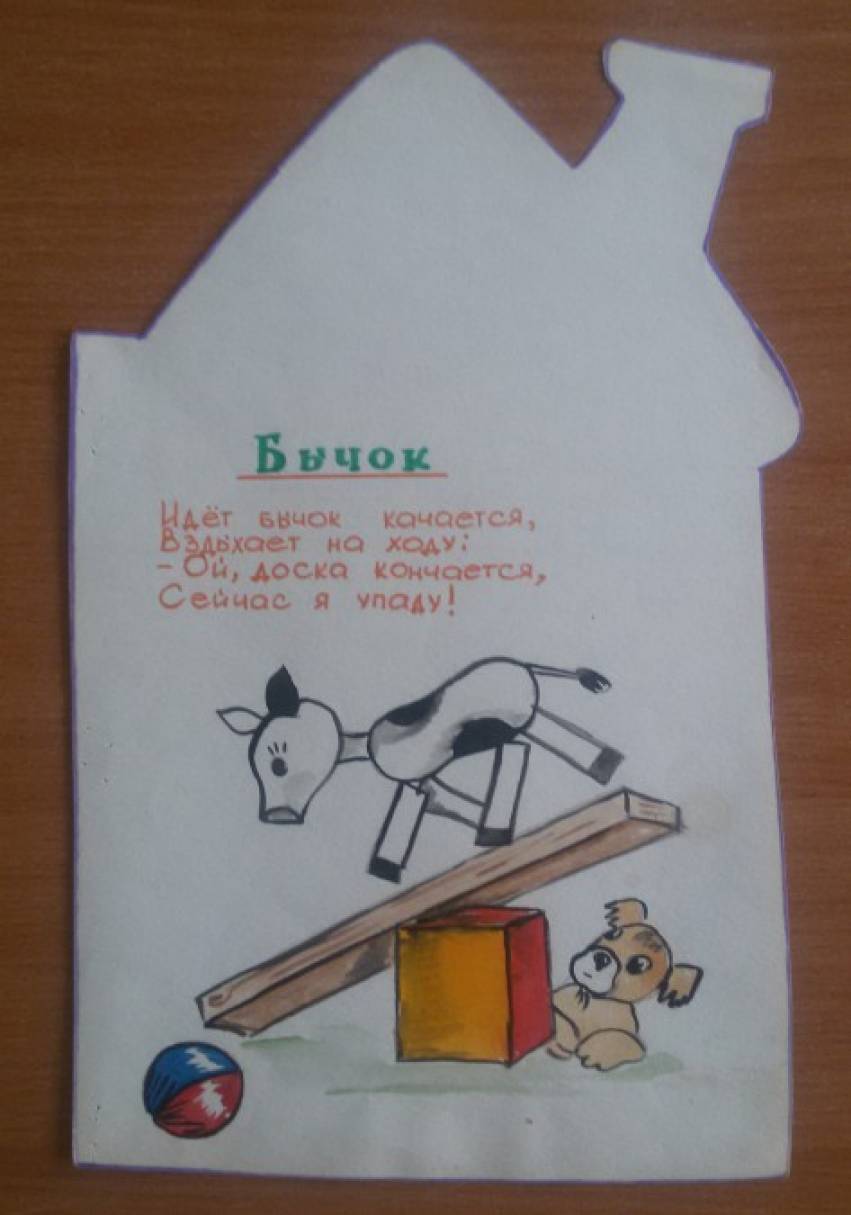 Бычок
Идёт бычок качается,
Вздыхает на ходу:
- Ой, доска кончается,
Сейчас я упаду!